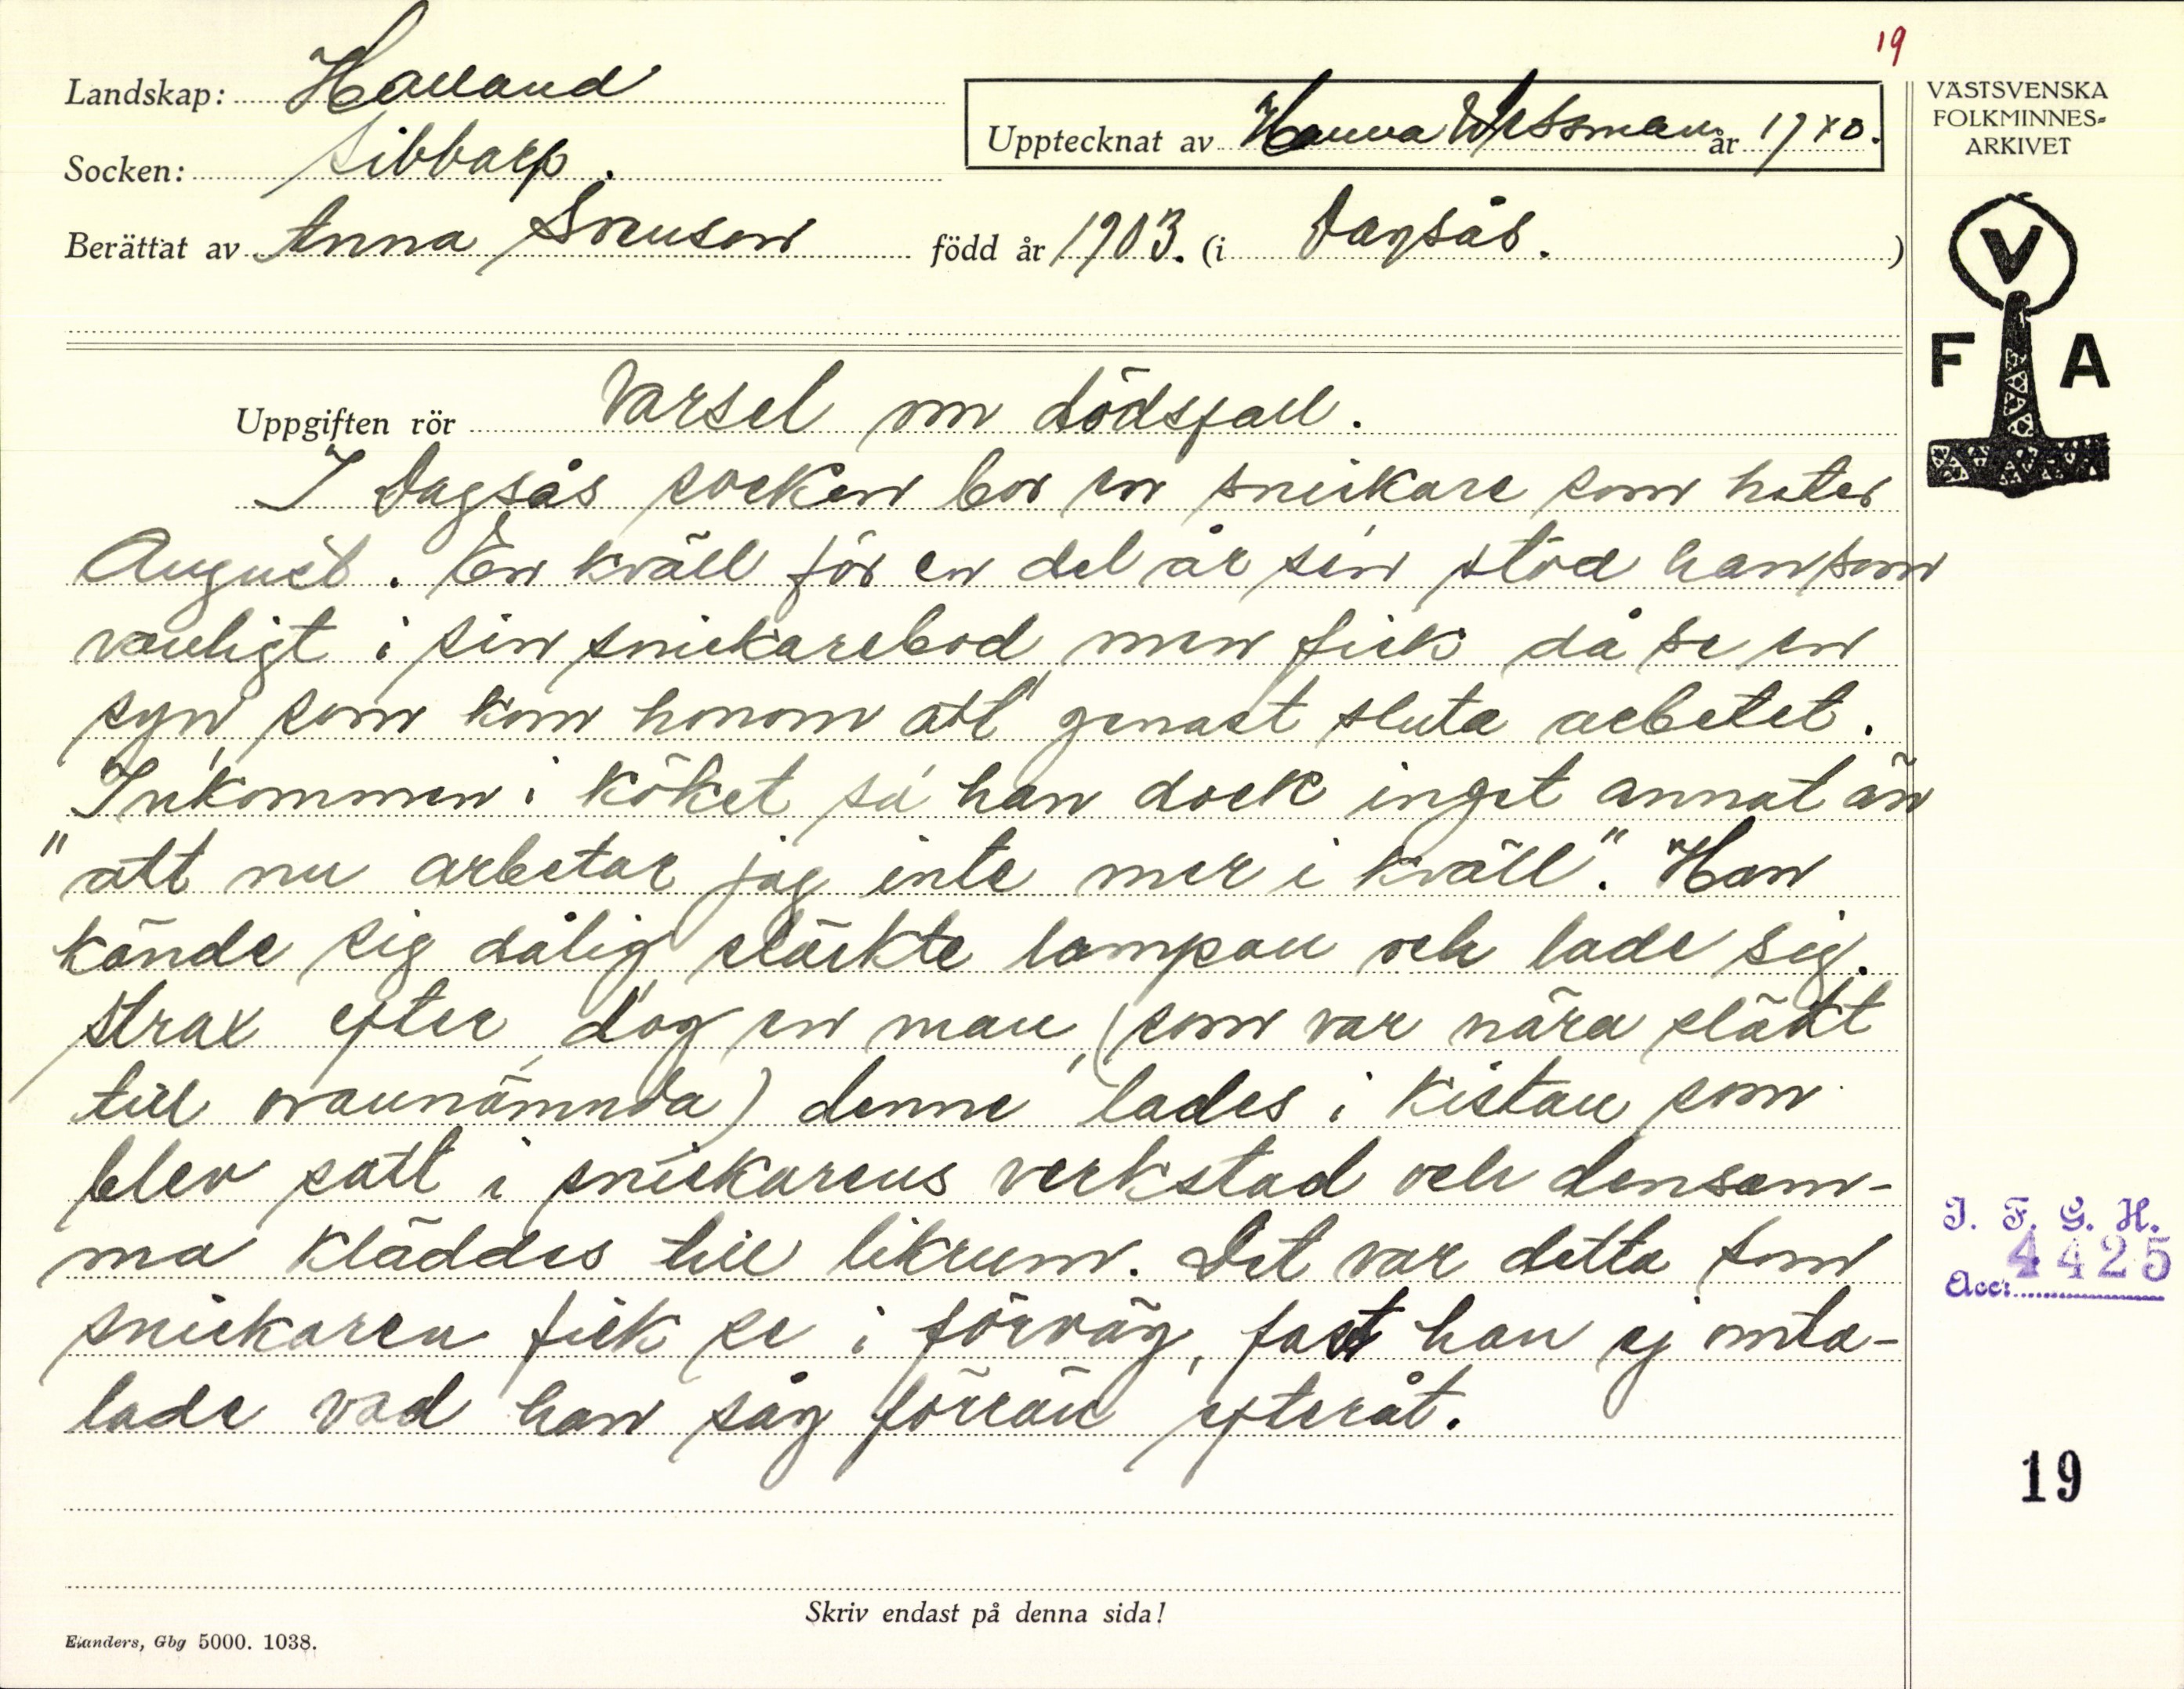 19
Landskap: Halland
Socken: Sibbarp.
Upptecknat av Hanna Wessman år 1940.
Berättat av Anna Svenson född år 1903. (i Dagsås. )
VÄSTSVENSKA
FOLKMINNES-
ARKIVET
V
F A
Uppgiften rör Varsel om dödsfall.
I Dagsås socken bor en snickare som heter
August. En kväll för en del år sen stod han som
vanligt i sin snickarebod, men fick då se en
syn, som kom honom att genast sluta arbetet.
Inkommen i köket sa' han dock inget annat än
"att nu arbetar jag inte mer i kväll". Han
kände sig dålig, släckte lampan och lade sig.
Strax efter, dog en man, (som var nära släkt
till ovannämnda) denne lades i kistan som
blev satt i snickarens verkstad och densam-
ma kläddes till likrum. Det var detta som
snickaren fick se i förväg, fast han ej omta-
lade vad han såg förrän efteråt.
I. F. G. H.
Acc: 4425
19
Skriv endast på denna sida!
Elanders, Gbg 5000. 1038.